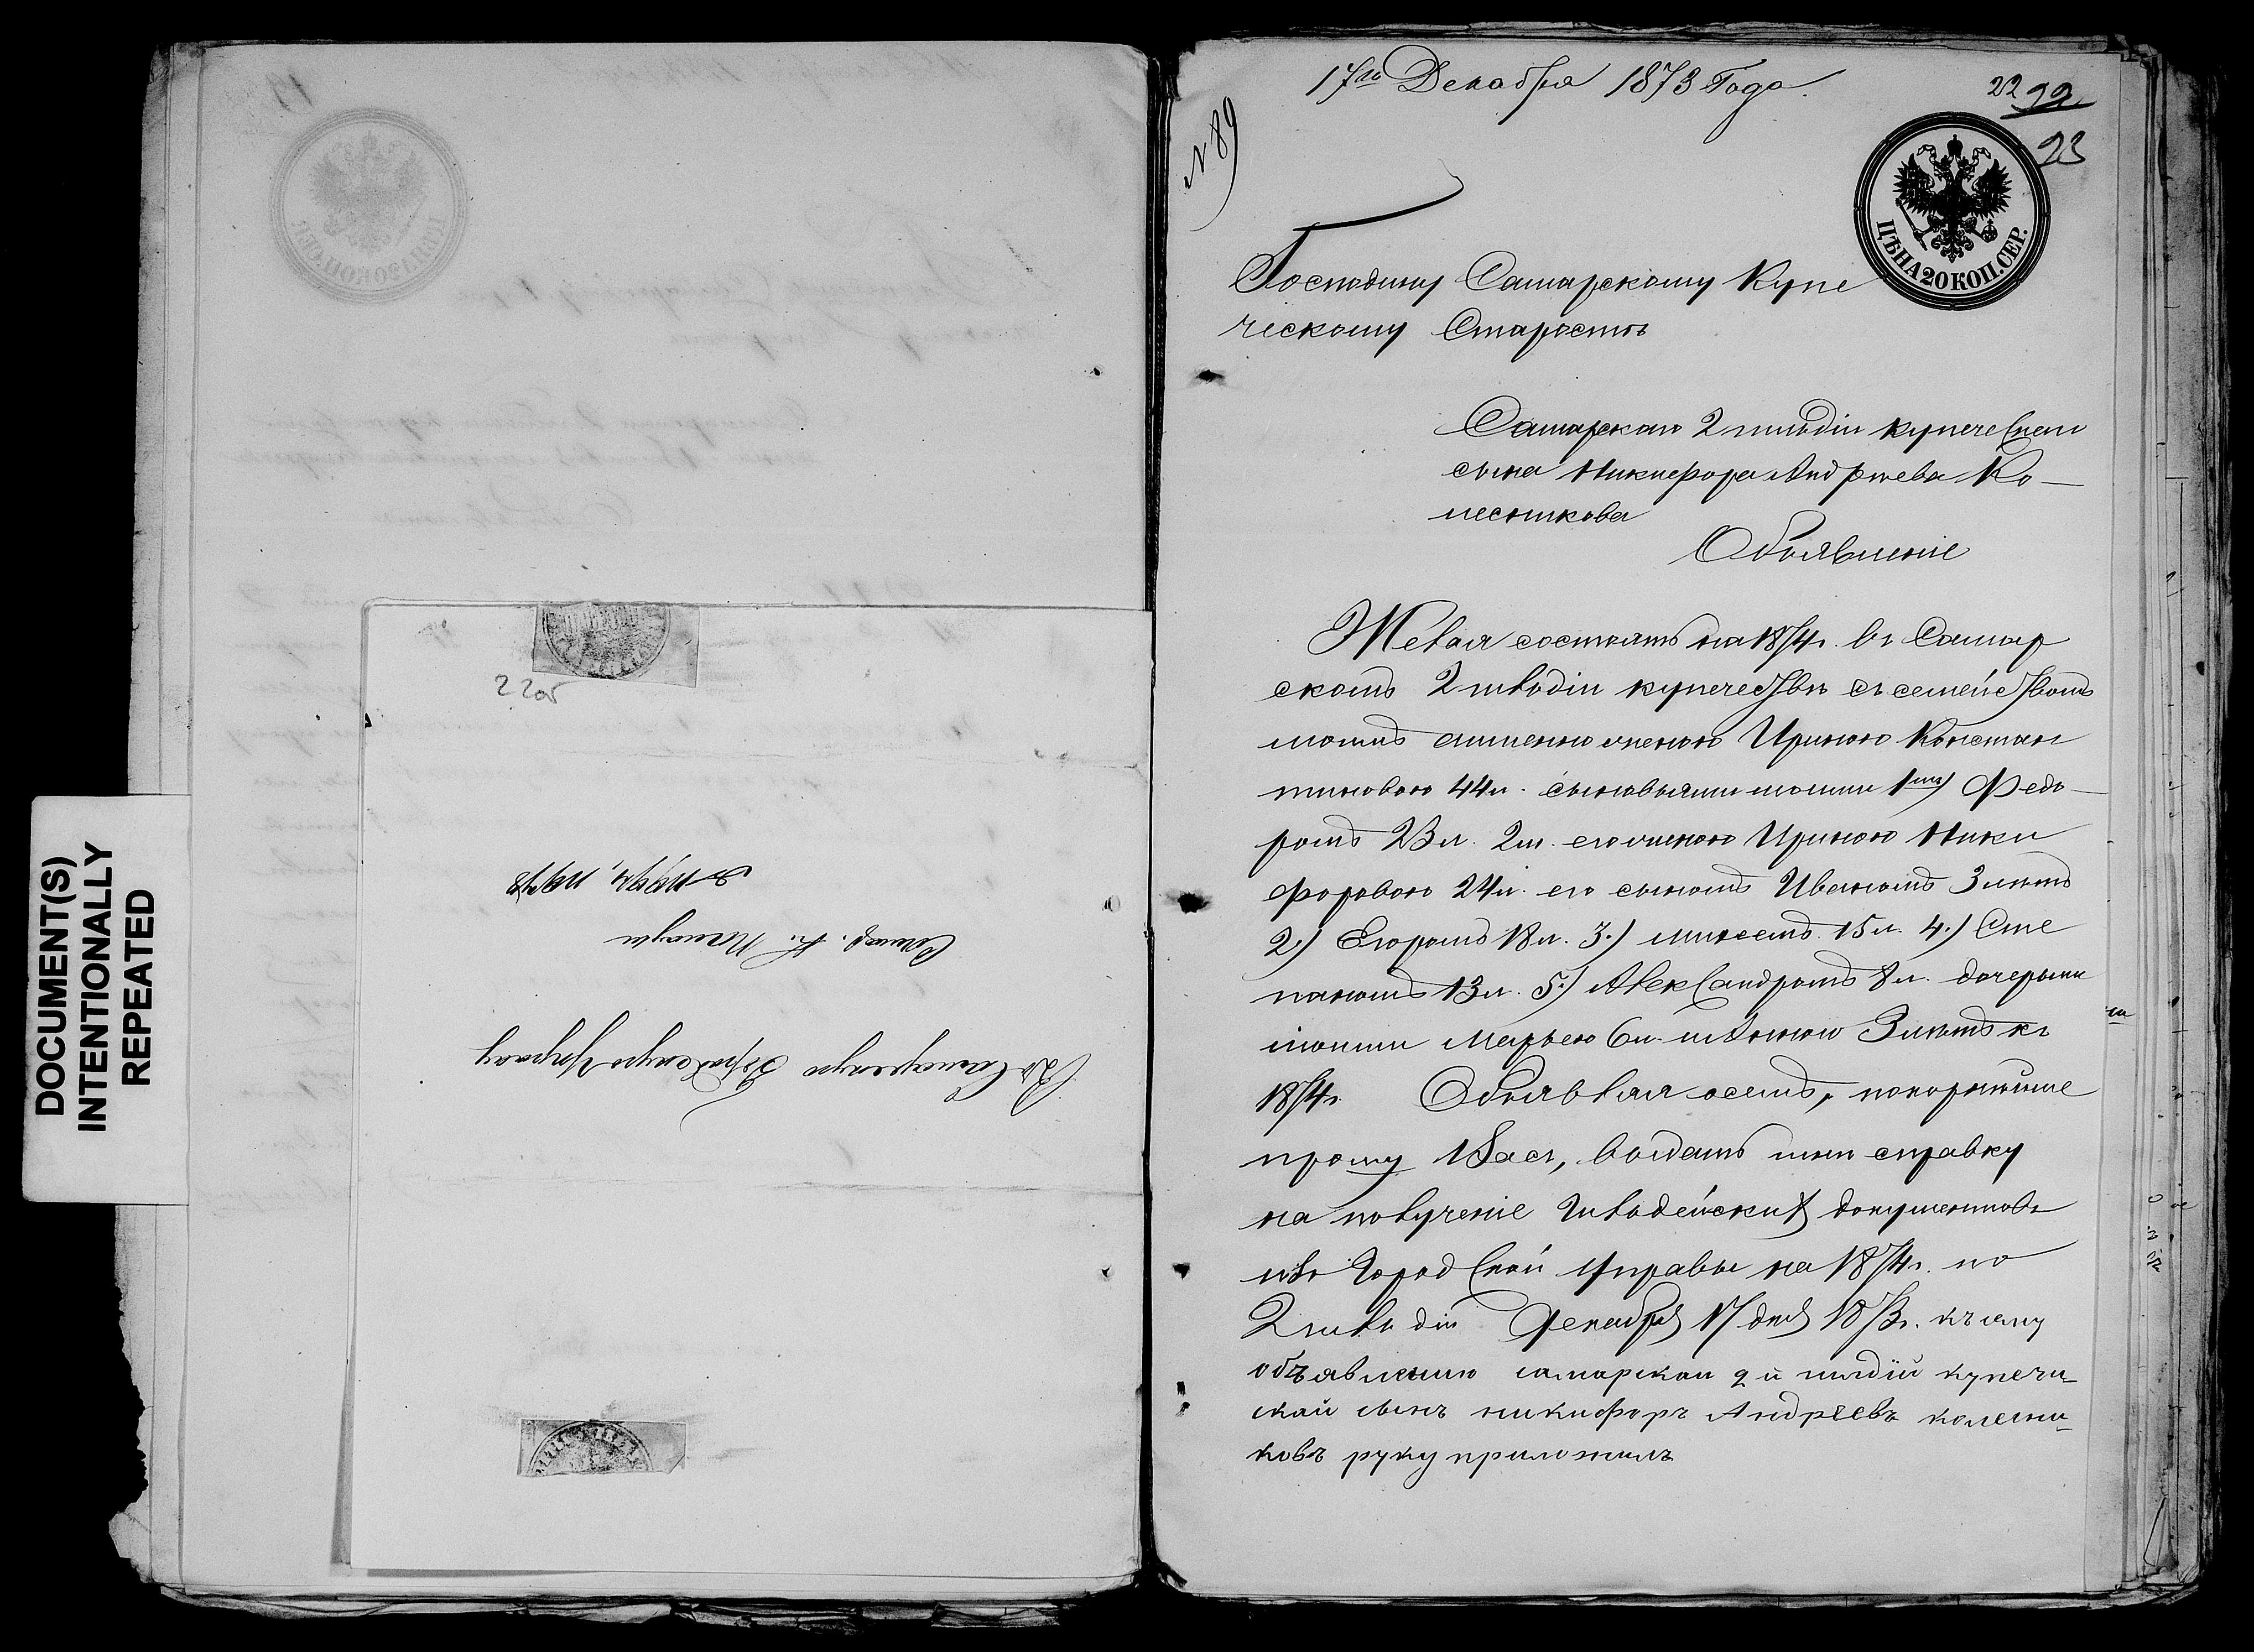 DOCUMENT(S)
INTENTIONALLY
REPEATED
22об
17го Декабря 1873 Года.
22 22
23
N 89
ЦѢНА 20 КОП. СЕР.
Господину Самарскому Купе
ческому Старостѣ
Самарскаго 2 гильдіи купеческаго
сына Никифора Андрѣева Ко-
лесникова
Объявленіе
Желая состоять на 1874г. въ Самар
скомъ 2 гильдіи купечествѣ съ семействомъ
моимъ женою Ириною Констан
тиновою 44л. сыновьями моими 1мъ) Федо-
ромъ 23л. его женою Ириною Ники
форовою 24л. его сыномъ Иваномъ 3 лѣтъ
2.) Егоромъ 18л. 3.) 15л. 4.) Сте
паномъ 13л. 5.) Александромъ 8л. дочерьми
моими Марьею 6л. и Анною 3 лѣтъ къ
1874г. Объявляя о семъ, покорнѣйше
прошу Васъ, выдать мнѣ справку
на полученіе Гильдейскихъ документовъ
изъ Городской Управы на 1874г. по
2 гильдіи Декабря 17 дня 1873г. къ сему
объявлению самарскаи 2 й гилдіи купечи-
скай сынъ никифоръ Андреевъ колесни-
ковъ руку приложилъ